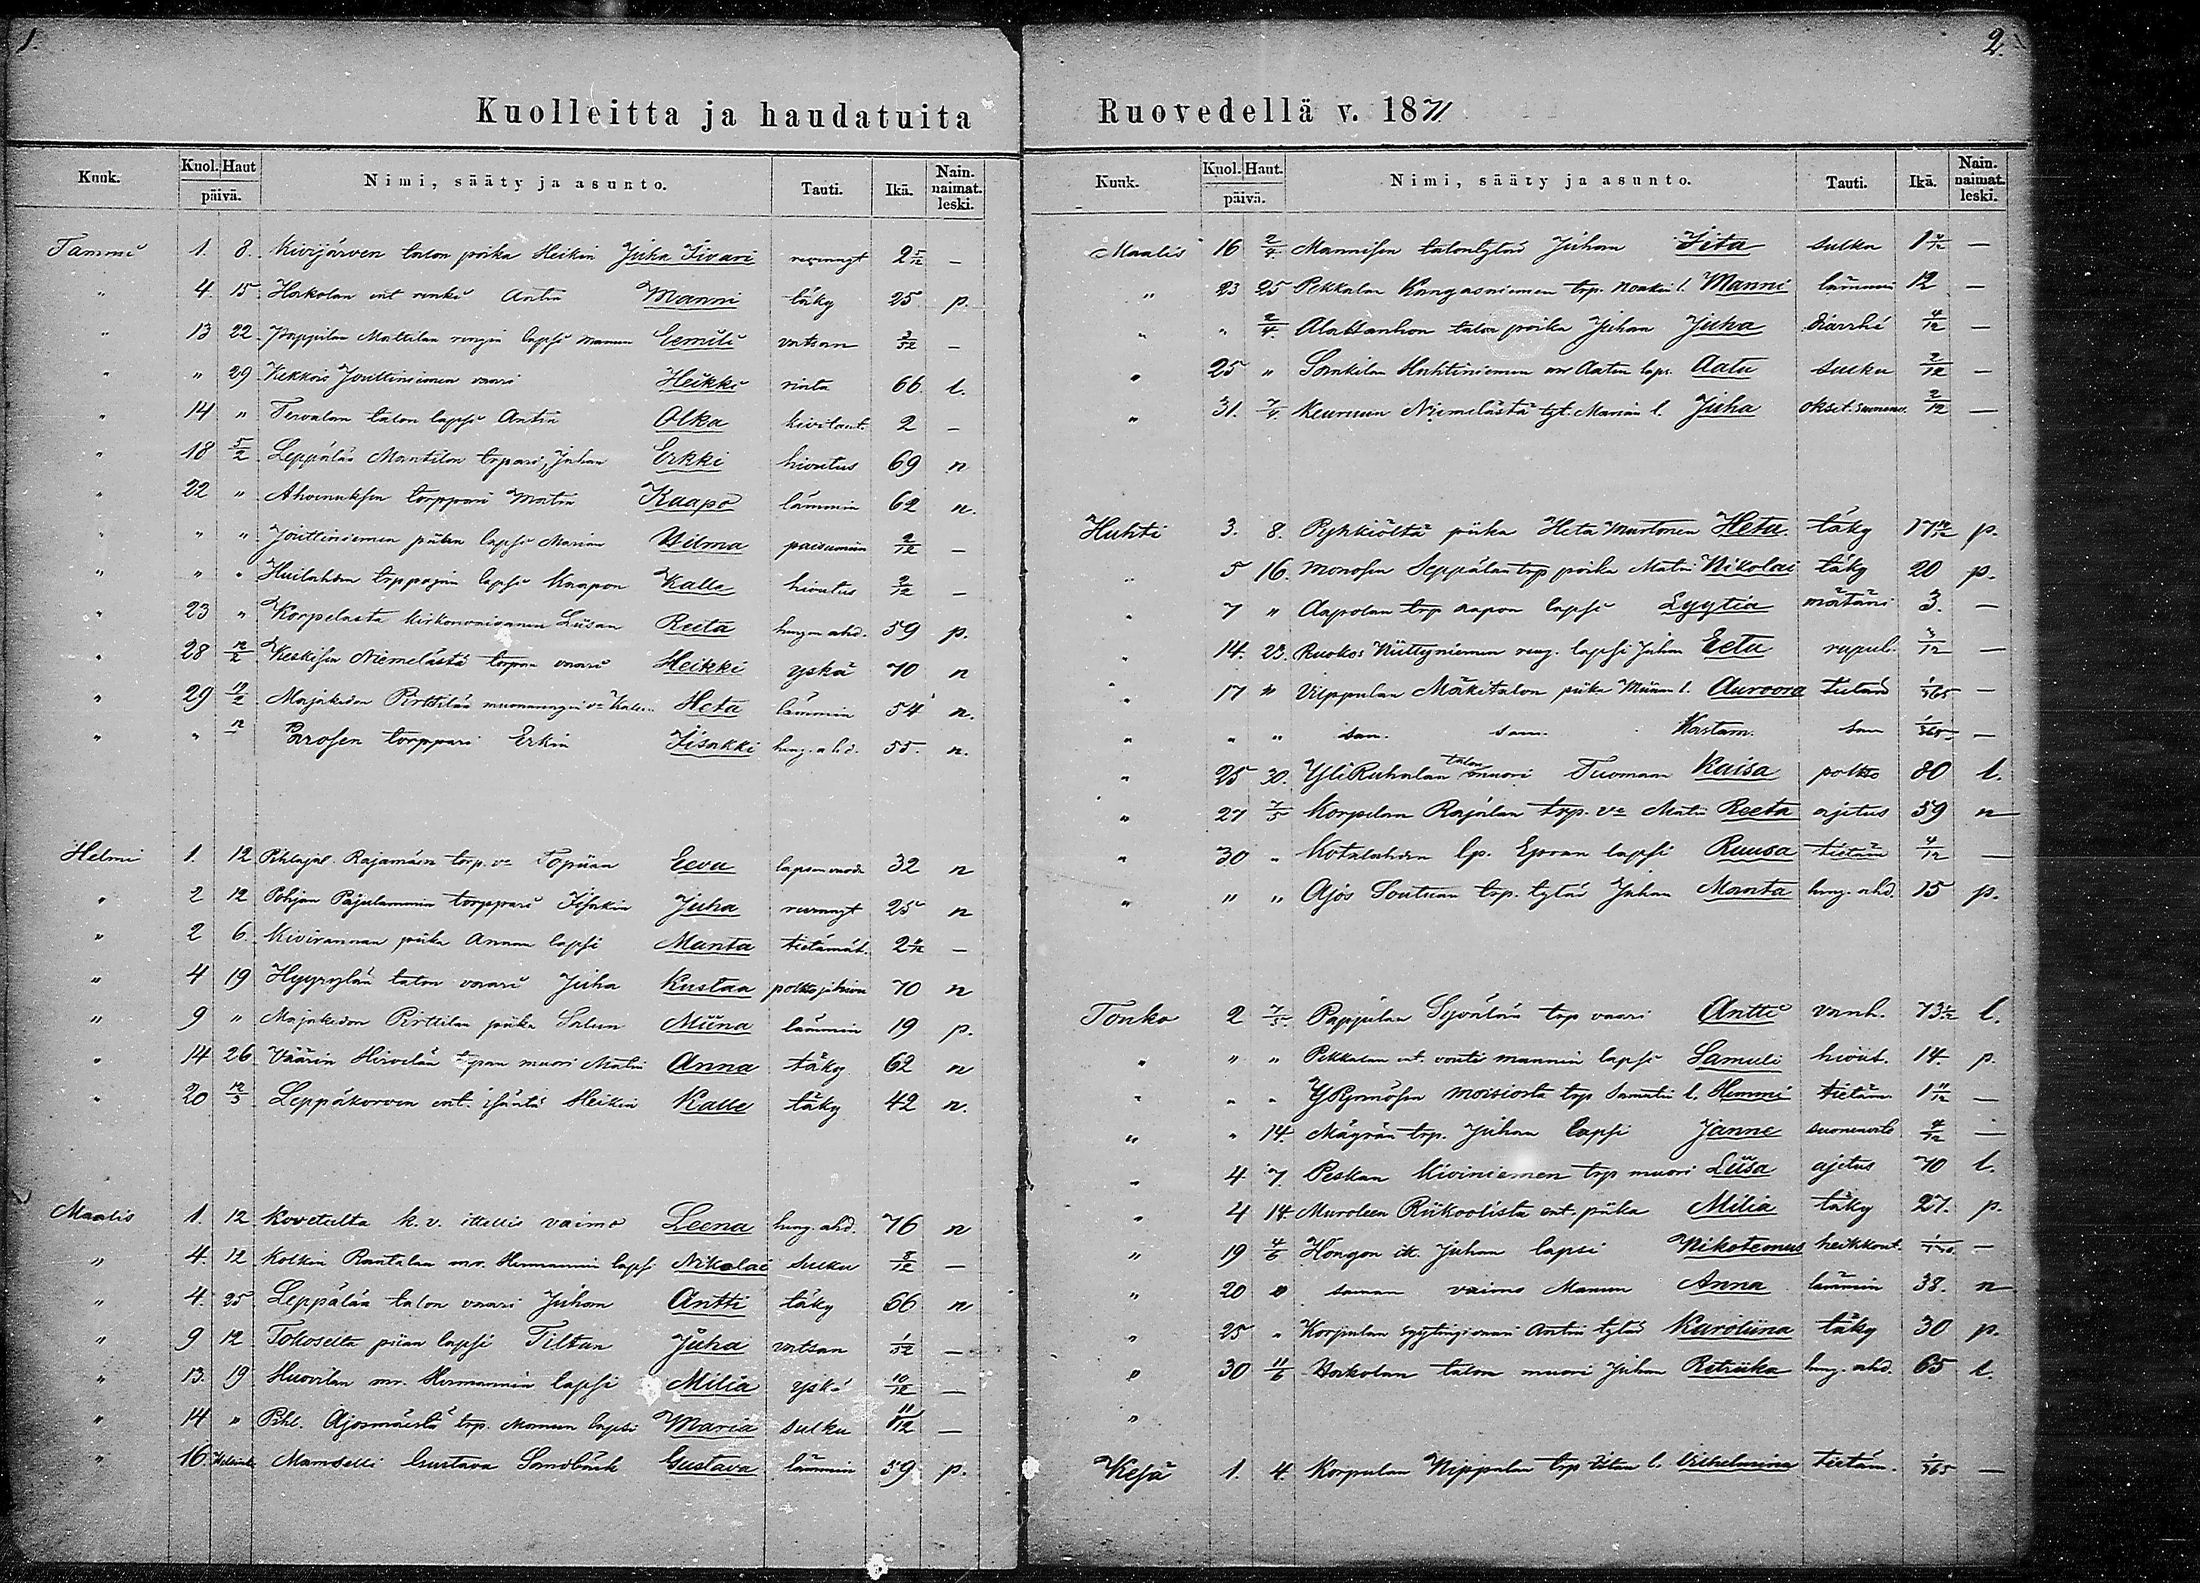 1.
Kuolleitta ja haudatuita
Kuuk. Kuol. Haut päivä. Nimi, sääty ja asunto. Tauti. Ikä. Nain. naimat. leski.
Tammi 1. 8. Kivijärven talon poika Heikin Juha Iivari 2 5/12 —
" 4. 15. Hakolan ent renki Antin Manni täky 25 p.
" 13 22. Pappilan Mattilan rengin lapsi Mannun Eemili vatsan 3/52 —
" " 29 Kekkois Jouttiniemen vaari Heikki rinta 66. l.
" 14 " Tervalan talon lapsi Antin Olka kivitaut. 2 —
" 18 5/2 Leppälän Mantilan trpari, Juhan Erkki hivutus 69 n
" 22 " torppari Matin Kaapo lämmin 62 n.
" " " Jouttiniemen piian lapsi Marian Vilma paisumin 2/12 —
" " " Huilahden torpparin lapsi Kaapon Kalle hivutus 2/12 —
" 23 " Korpelasta kirkonvaivanen Liisan Reeta heng. ahd. 59 p.
" 28 12/2 Keskisen Niemelästä torpan vaari Heikki yskä 70 n
" 29 12/2 Majakedon Pirttilän va Heta lämmin 54 n.
" " 12 Parosen torppari Erkin Iisakki heng. ahd. 55. n.
Helmi 1. 12 Pihlajal. Rajamäen torp. va Topiian Eeva lapsenvuode 32 n
" 2 12 Pohjan Pajulammin torppari Iisakin Juha 25 n
" 2 6. Kivirannan piika Annan lapsi Manta tietämät. 2 —
" 4 19 Hyyrylän talon vaari Juha Kustaa 70 n
" 9 " Majakedon Pirttilän piika Salun Miina lämmin 19 p.
" 14 26 Väärin Hirvelän trpan muori Matin Anna täky 62 n
" 20 12/3 Leppäkorven ent. isäntä Heikin Kalle täky 42 n.
Maalis 1. 12 Kovetulta k.v. ittellis vaimo Leena heng. ahd. 76 n
" 4. 12 Kotkin Rantalan mr. Hermannin lapsi Nikolai sulku 8/12 —
" 4. 25 Leppälän talon vaari Juhan Antti täky 66 n
" 9 12 Tokoselta piian lapsi Tiltan Juha vatsan 1/52 —
" 13. 19 Huovilan mr. Hermannin lapsi Milia yskä 10/12 —
" 14 " Pihl. Ajosmäestä trp. Mannun lapsi Maria sulku 11/12 —
" 16. Helsink. Mamselli Gustava Sandbäck Gustava lämmin 59 p.
2.
Ruovedellä v. 1871
Kuuk. Kuol. Haut. päivä. Nimi, sääty ja asunto. Tauti. Ikä. Nain. naimat. leski.
Maalis 16 2/4 Mannisen talontytär Juhan Iita sulku 1 —
" 23 25 Pekkalan Kangasniemen trp. Noakin l. Manni lämmin 12 —
" " 2/4 talon poika Juhan Juha diarrhé 4/12 —
" 25 " Sonkilan Huhtiniemen mr Aatun laps. Aatu sulku 2/12 —
" 31. 7/4 Keuruun Niemelästä tyt. Marian l. Juha okset. 2/12 —
Huhti 3. 8. Pyhkiöltä piika Heta Martonen Heta. täky 17 10/12 p.
" 5 16. Monosen Seppälän trp poika Matin Nikolai täky 20 p.
" 7 " Aapolan trp Aapon lapsi Lyytia mätäni 3. —
" 14. 23. Ruokos Niittyniemen reng. lapsi Juhan Eeta rupul. 3/12 —
" 17 " Vilppulan Mäkitalon piika Miinan l. Auroora tietäm 1/365 —
" " " sam. sam. Kastam. sam 1/365 —
" 25 30. YliRuhalan talon muori Tuomaan Kaisa polkko 80 l.
" 27 7/5 Korpulan Rajalan trp. va Matin Reeta ajetus 59 n
" 30 " Kotalahden lp. Epraan lapsi Ruusa tietäm 4/12 —
" " " Ajos Soutuan trp. tytär Juhan Manta heng. ahd. 15 p.
Touko 2 7/5 Pappilan Syvälän trp vaari Antti vanh. 73 l.
" " " Pekkalan ent. vouti Mannin lapsi Samuli hivut. 14. p.
" " " moisiosta trp. Samulin l. Hemmi tietäm. 1 11/12 —
" " 14. Mäyrän trp. Juhan lapsi Janne suonenveto 4/12 —
" 4. 7. Peskan Kiviniemen trp muori Liisa ajetus 70 l.
" 4 14. Muroleen Riikoolista ent. piika Milia täky 27. p.
" 19 4/6 Hongon it. Juhan lapsi Nikotemus heikkout. —
" 20 " saman vaimo Mannun Anna lämmin 38. n
" 25 " Korpulan Antin tytär Karoliina täky 30 p.
" 30 11/6 Hakolan talon muori Juhan Retriika heng. ahd. 65 l.
"
Kesä 1. 4. Korpulan Nippalan trp l. Vilhelmiina tietäm. 1/365 —